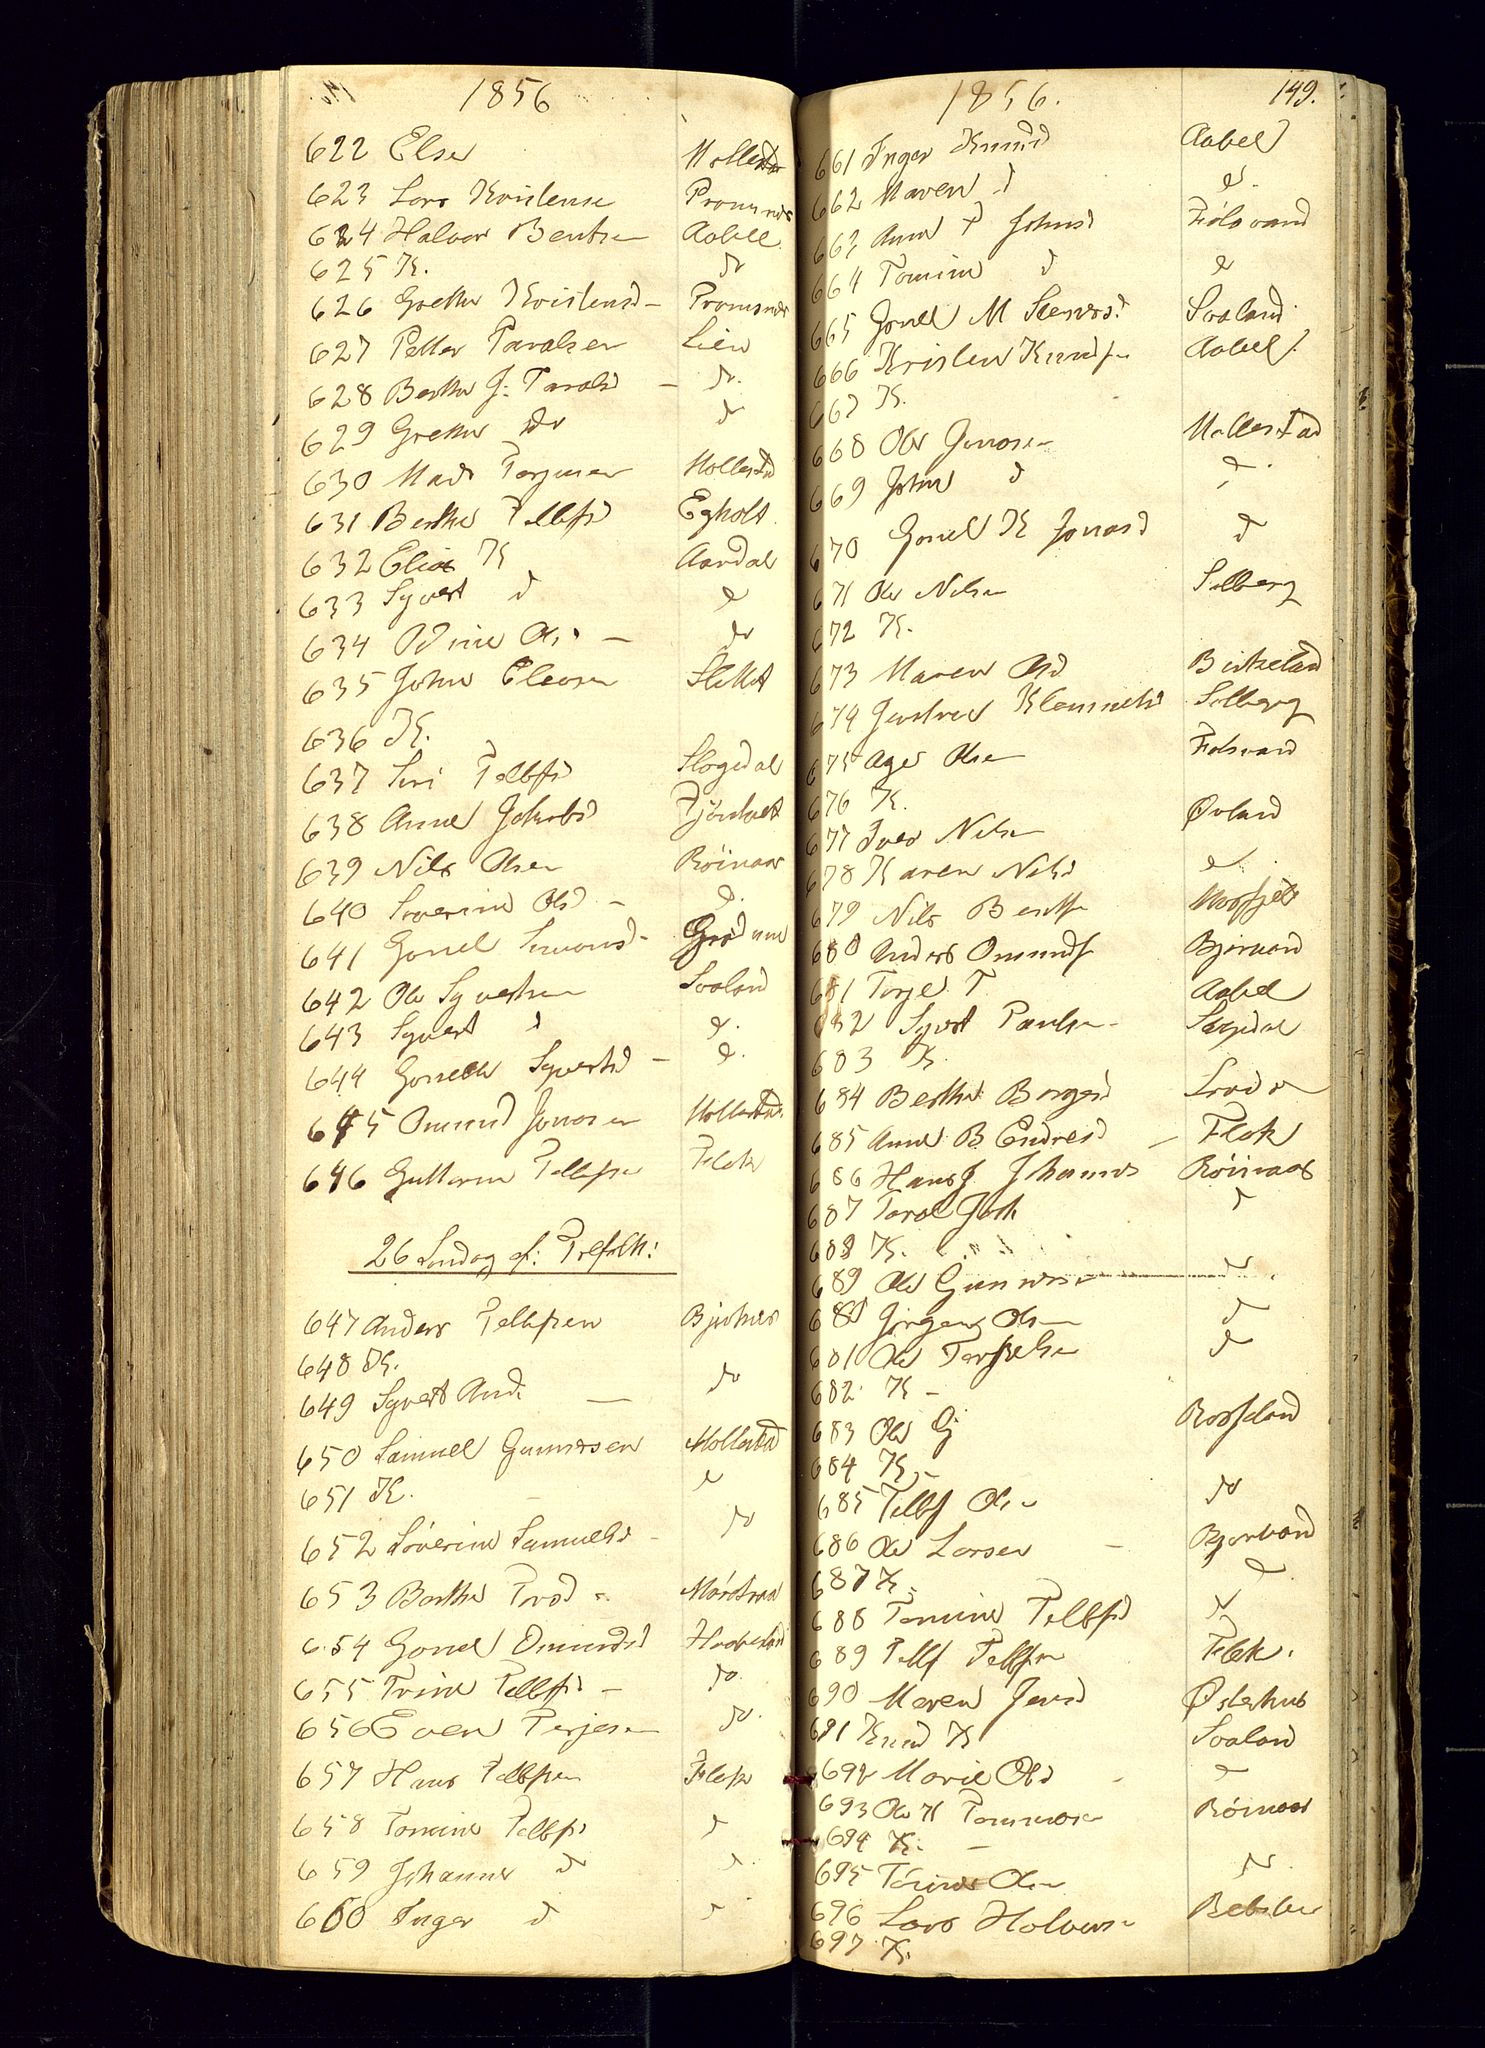 1856
622 Else Mollestad
623 Lars Kristense Promsnes
624 Halvor Bentsen Aabel
625 K. do
626 Grethe Kristensd – Promsnes
627 Petter Taralsen Lien
628 Berthe J: Taralsd – do
629 Grethe do d
630 Mads Terjusen Mollestad
631 Berthe Tellefsd Egholt
632 Elias K Aardal
633 Syvert d d
634 Odine Ols – do
635 John Eleasen Slettet
636 K.
637 Siri Tellefsd Slogedal
638 Anne Jakobsd
639 Nils Olsen Röinaas
640 Severine Olsd – d.
641 Gonel Simonsd –
642 Ole Syvertsen Svaland
643 Syvert d d.
644 Gonelle Syvertsd – d.
645 Omund Jonasen Mollestad
646 Guttorm Tellefsen Flak
26 Søndag ef: Trefoldh:
647 Anders Tellefsen
648 K.
649 Syvert And. – do
650 Samuel Gunnersen Mollestad
651 K. d
652 Söverine Samuelsd – do
653 Berthe
654 Gonel Omundsd
655 Trine Tellefsd – do
656 Even Terjesen do.
657 Hans Tellefsen Flak
658 Tomine Tellefsd d
659 Johanne d d.
660 Inger d d
1856. 149.
661 Inger Knudsd Aabel
662 Maren d d.
663 Anne T Johnsd Fölsvand
664 Tomine d d
665 Gonel M Steners: Svaland
666 Kristen Knudsen Aabel.
667 K.
668 Ole Jonasen Mollestad
669 John d d.
670 Gonel K Jonasd d
671 Ole Nilsen Solberg
672 K.
673 Maren Olsd Birkeland
674 Klemmetsd Solberg
675 Ager Olsen Folsvand
676 K.
677 Iver Nilsen Øvland
678 Karen Nilsd d
679 Nils Bentsen Mosfjeld
680 Anders Omundsen Bjorvand
681 Torje T Aabel
682 Syvert Paulsen
683 K.
684 Berthe Borgesd
685 Anne B Endresd – Flak
686 Hans J. Johannes Röinaas
687 Tarol d
688 K.
689 Ole Gunnersen do
680 Jørgen Olsen d
681 Ole Terkelsen d
682 K –
683 Ole Gj Rosseland
684 K –
685 Tellef Olsen do
686 Ole Larsen – Bjorvand
687 K. d
688 Tomine Tellefsd d
689 Tellef Tellefsen Flak.
690 Maren Jensd Østerhus
691 Knud K Svaland
692 Marie Olsd d
693 Ole K Tommesen Röinaas
694 K. –
695 Olsen do.
696 Lars Halvorsen
697 K.